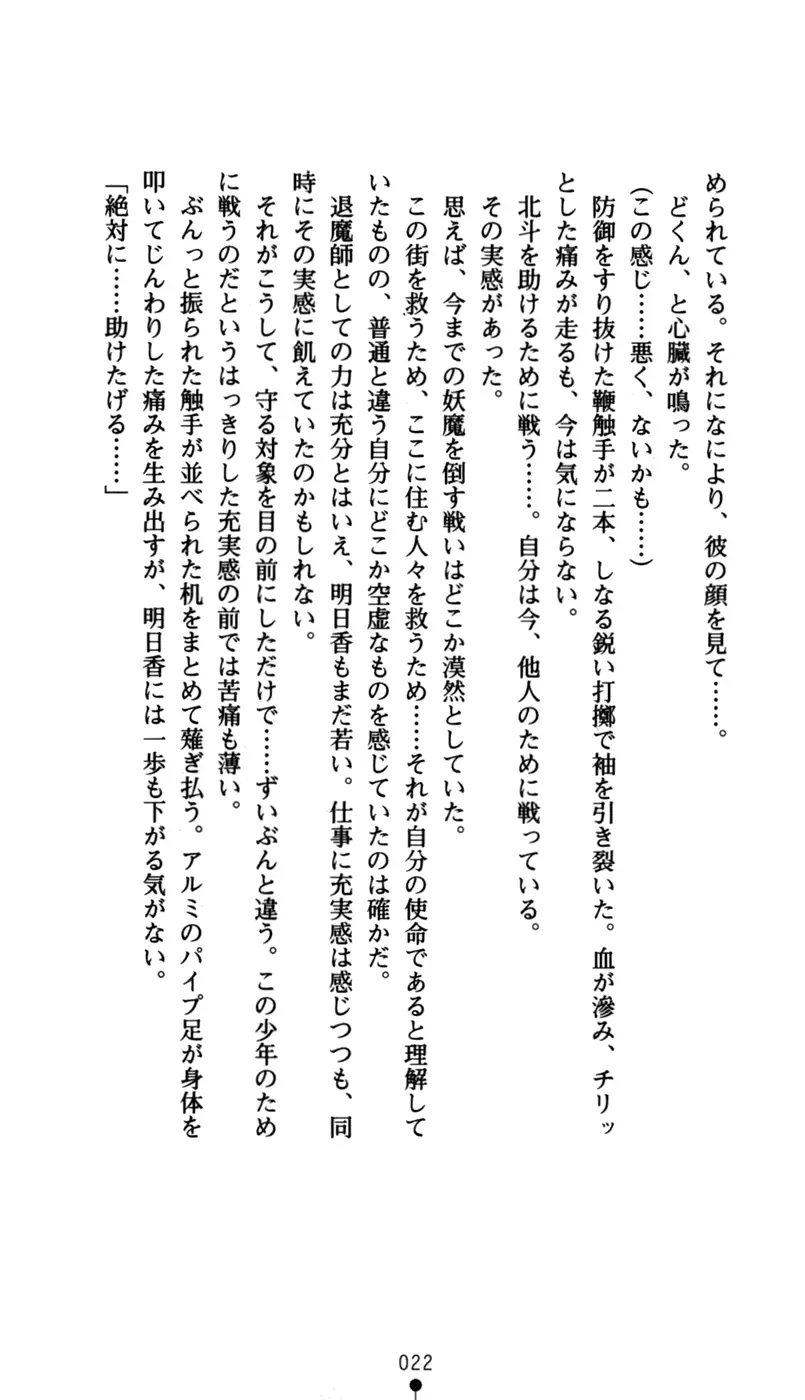 められている。それになにより、彼の顔を見て……。
　どくん、と心臓が鳴った。
（この感じ……悪く、ないかも……）
　防御をすり抜けた鞭触手が二本、しなる鋭い打擲で袖を引き裂いた。血が滲み、チリッ
とした痛みが走るも、今は気にならない。
　北斗を助けるために戦う……。自分は今、他人のために戦っている。
　その実感があった。
　思えば、今までの妖魔を倒す戦いはどこか漠然としていた。
　この街を救うため、ここに住む人々を救うため……それが自分の使命であると理解して
いたものの、普通と違う自分にどこか空虚なものを感じていたのは確かだ。
　退魔師としての力は充分とはいえ、明日香もまだ若い。仕事に充実感は感じつつも、同
時にその実感に飢えていたのかもしれない。
　それがこうして、守る対象を目の前にしただけで……ずいぶんと違う。この少年のため
に戦うのだというはっきりした充実感の前では苦痛も薄い。
　ぶんっと振られた触手が並べられた机をまとめて薙ぎ払う。アルミのパイプ足が身体を
叩いてじんわりした痛みを生み出すが、明日香には一歩も下がる気がない。
「絶対に……助けたげる……」
022